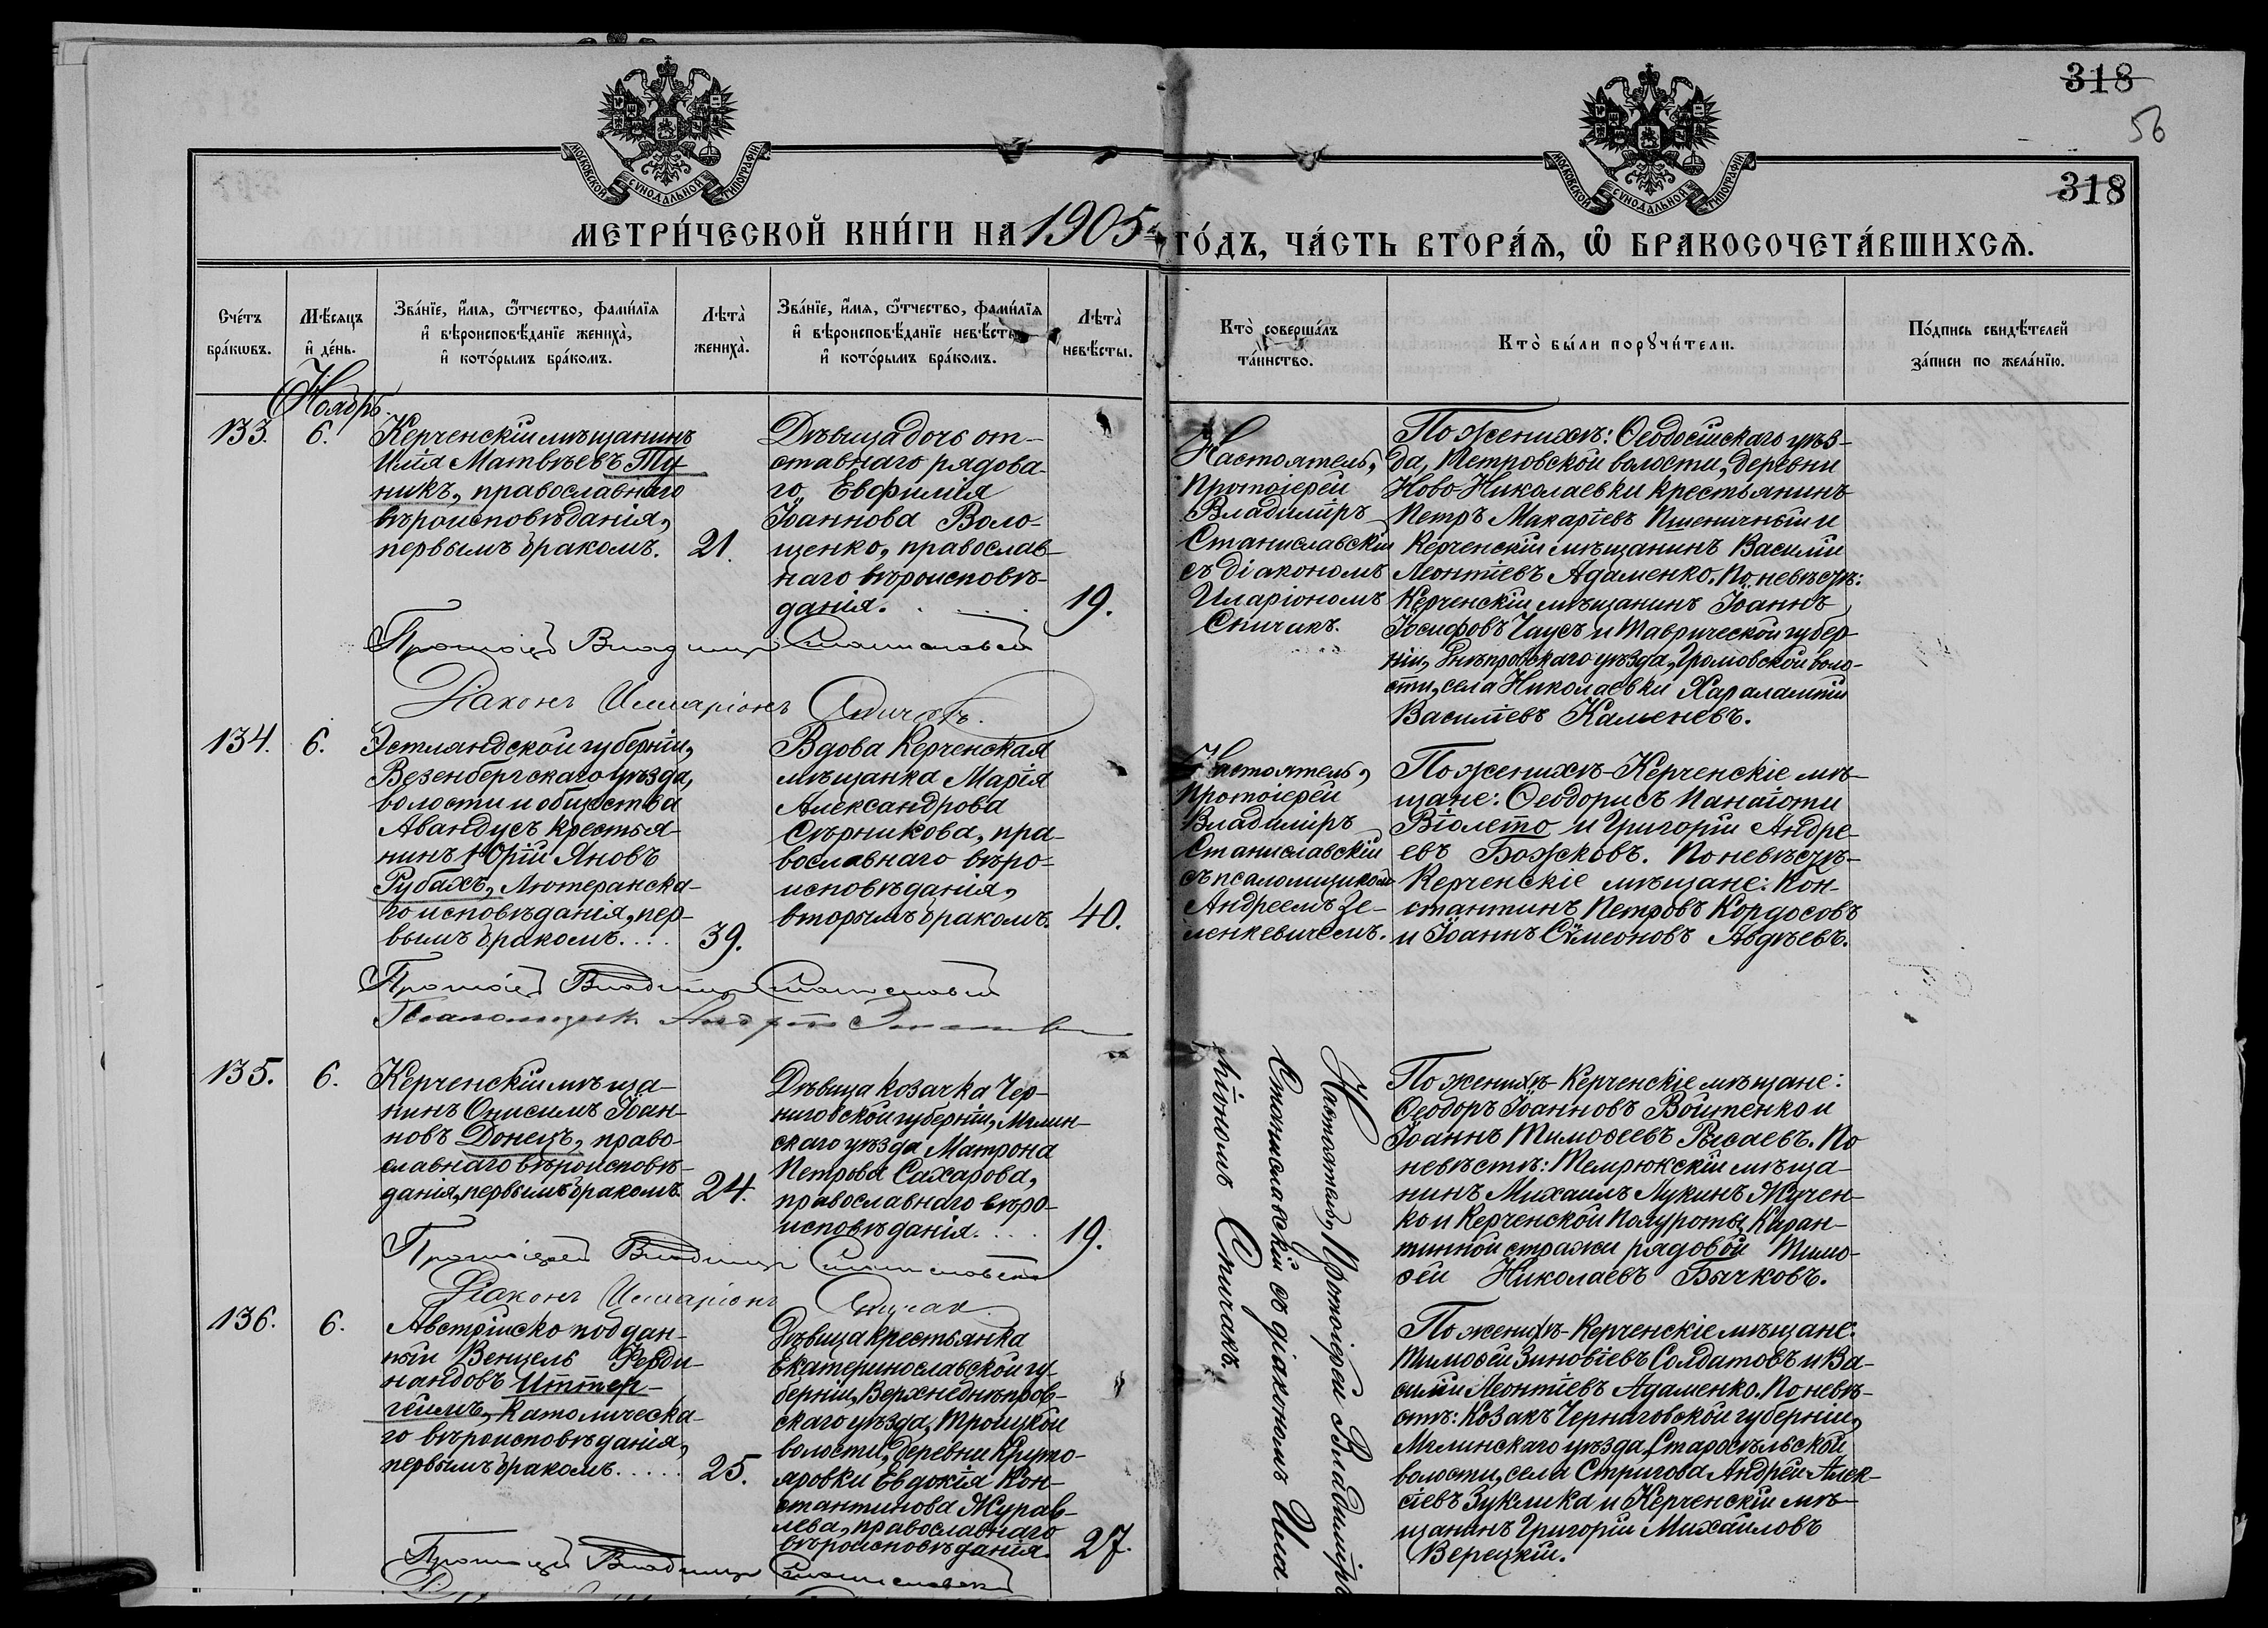 318
56
318
МОСКОВСКОЙ СѴНОДАЛЬНОЙ ТИПОГРАФІИ
МОСКОВСКОЙ СѴНОДАЛЬНОЙ ТИПОГРАФІИ
МЕТРИ́ЧЕСКОЙ КНИ́ГИ НА 1905й ГО́ДЪ, ЧА́СТЬ ВТОРА́Ѧ, Ѽ БРАКОСОЧЕТА́ВШИХСѦ.
Сче́тъ
бра́кѡвъ.
Мѣ́сяцъ
и҆ де́нь.
Зва́нїе, и҆́мѧ, ѻ҆́тчество, фами́лїѧ
и҆ вѣроисповѣ́данїе жениха̀,
и҆ кото́рымъ бра́комъ.
Лѣта̀
жениха̀.
Зва́нїе, и҆́мѧ, ѻ҆́тчество, фами́лїѧ
и҆ вѣроисповѣ́данїе невѣ́сты,
и҆ кото́рымъ бра́комъ.
Лѣта̀
невѣ́сты.
Кто̀ соверша́лъ
та́инство.
Кто̀ бы́ли порꙋчи́тели.
По́дпись свидѣ́телей
за́писи по жела́нїю.
Ноябрь.
133.
6.
Керченскій мѣщанинъ
Илія Матвѣевъ Ту-
никъ, православнаго
вѣроисповѣданія,
первымъ бракомъ.
21.
Дѣвица дочь от-
ставнаго рядова-
го Евфимія
Іоаннова Воло-
щенко, православ-
наго вѣроисповѣ-
данія.
19.
Настоятель,
Протоіерей
Владиміръ
Станиславскій
съ діакономъ
Иларіономъ
Спичакъ.
По женихѣ: Ѳеодосійскаго уѣз-
да, Петровской волости, деревни
Ново Николаевки крестьянинъ
Петръ Макаріевъ Пшеничный и
Керченскій мѣщанинъ Василій
Леонтіевъ Адаменко. По невѣстѣ:
Керченскій мѣщанинъ Іоаннъ
Іосифовъ Чаусъ и Таврической губер-
ніи, Днѣпровскаго уѣзда, Громовской воло-
сти, села Николаевки Харалампій
Василіевъ Каменевъ.
Протоіерей Владиміръ Станиславскій
Діаконъ Илларіонъ Спичакъ.
134.
6.
Эстляндской губерніи,
Везенбергскаго уѣзда,
волости и общества
Авандусъ крестья-
нинъ Юрій Яновъ
Рубахъ, Лютеранска-
го исповѣданія, пер-
вымъ бракомъ. . . .
39.
Вдова Керченская
мѣщанка Марія
Александрова
Сѣрникова, пра-
вославнаго вѣро-
исповѣданія,
вторымъ бракомъ.
40.
Настоятель,
Протоіерей
Владиміръ
Станиславскій
съ псаломщикомъ
Андреемъ Зе-
ленкевичемъ.
По женихѣ - Керченскіе мѣ-
щане: Ѳеодорисъ Панаіоти
Віолето и Григорій Андре-
евъ Божковъ. По невѣстѣ-
Керченскіе мѣщане: Кон-
стантинъ Петровъ Кордосовъ
и Іоаннъ Сѵмеоновъ Авдѣевъ.
Протоіерей Владиміръ Станиславскій
Псаломщикъ Андрей
135.
6.
Керченскій мѣща-
нинъ Онисимъ Іоан-
новъ Донецъ, право-
славнаго вѣроисповѣ-
данія, первымъ бракомъ.
24.
Дѣвица козачка Чер-
ниговской губерніи, Мглин-
скаго уѣзда Матрона
Петрова Сахарова,
православнаго вѣро-
исповѣданія. . . .
19.
Настоятель, Протоіерей Владиміръ
Станиславскій съ діакономъ Ила-
ріономъ Спичакъ.
По женихѣ - Керченскіе мѣщане:
Ѳеодоръ Іоанновъ Войтенко и
Іоаннъ Тимоѳеевъ Рысаевъ. По
невѣстѣ: Темрюкскій мѣща-
нинъ Михаилъ Лукинъ Жучен-
ко и Керченской Полуроты, Каран-
тинной стражи рядовой Тимо-
ѳей Николаевъ Бычковъ.
Протоіерей Владиміръ Станиславскій
Діаконъ Илларіонъ Спичакъ
136.
6.
Австрійско поддан-
ный Венцель Ферди-
нандовъ Иттер-
геймъ, Католическа-
го вѣроисповѣданія,
первымъ бракомъ. . . . .
25.
Дѣвица крестьянка
Екатеринославской гу-
берніи, Верхнеднѣпров-
скаго уѣзда, Троицкой
волости, деревни Круто-
яровки Евдокія Кон-
стантинова Журав-
лева, православнаго
вѣроисповѣданія.
27.
По женихѣ - Керченскіе мѣщане:
Тимоѳей Зиновіевъ Солдатовъ и Ва-
силій Леонтіевъ Адаменко. По невѣ-
стѣ: Козакъ Черниговской губерніи,
Мглинскаго уѣзда, Старосельской
волости, села Стригова Андрей Алек-
сіевъ Зуклика и Керченскій мѣ-
щанинъ Григорій Михайловъ
Верецкій.
Протоіерей Владиміръ Станиславскій